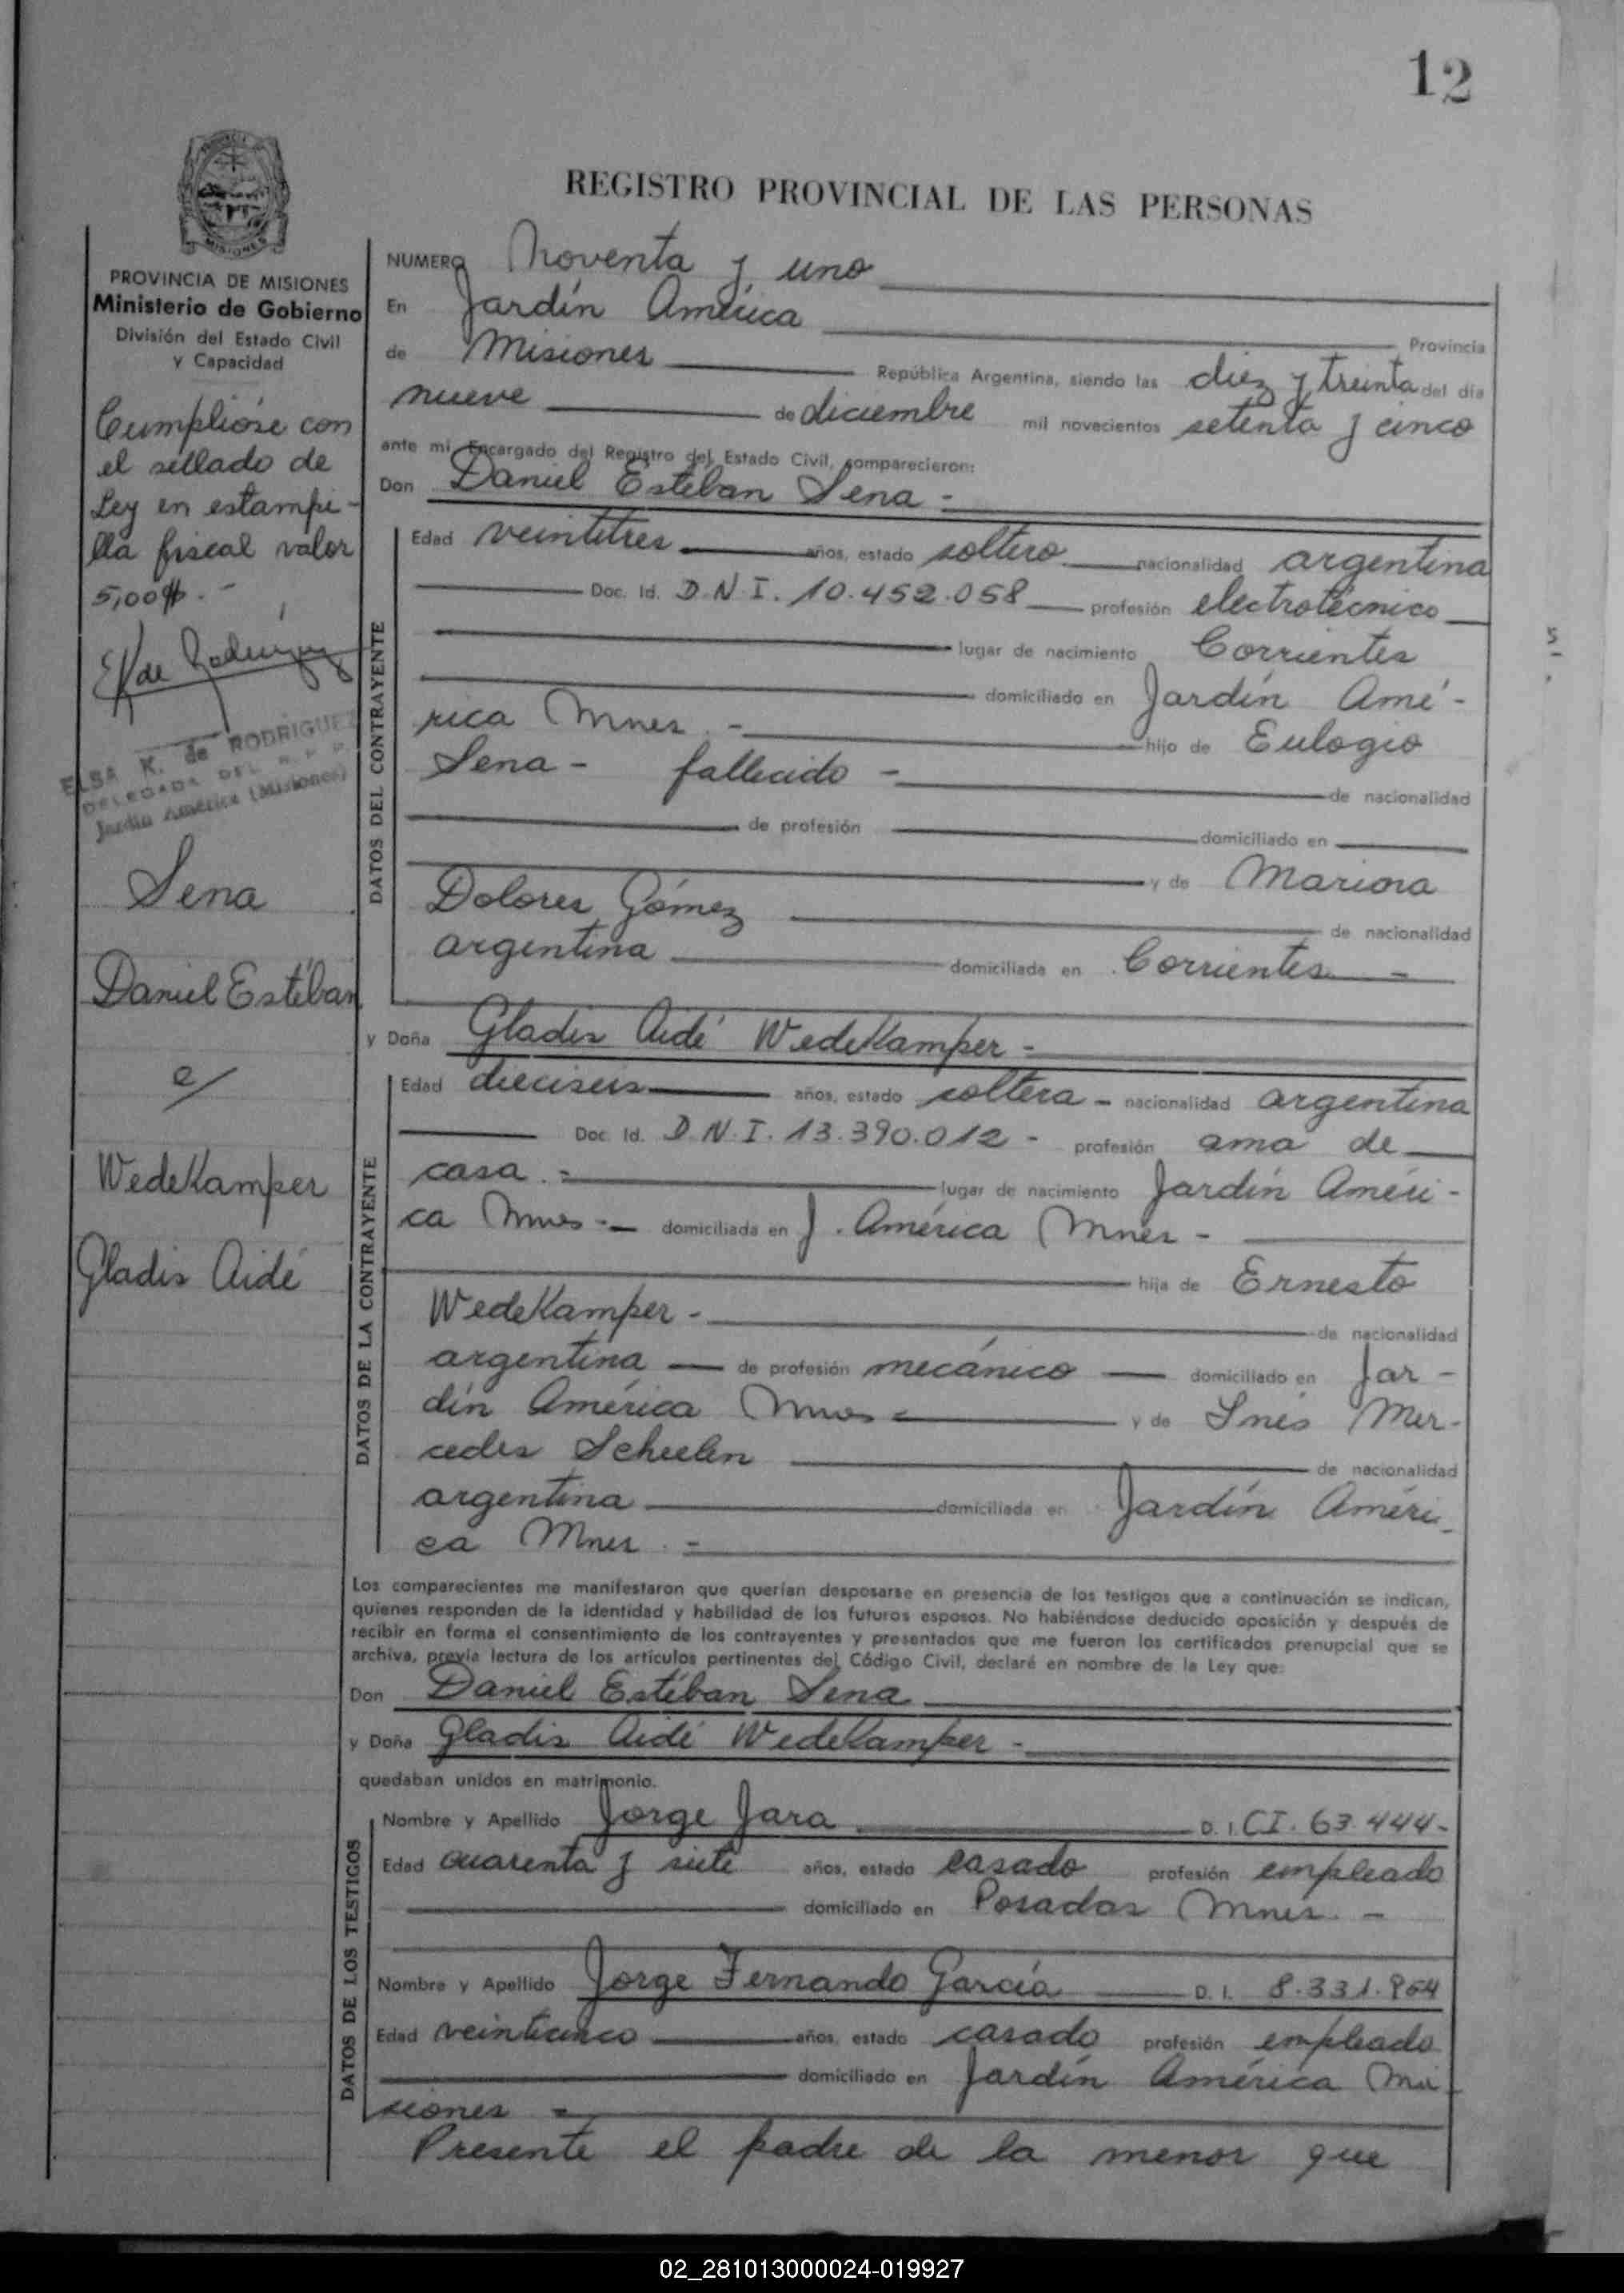 12
REGISTRO PROVINCIAL DE LAS PERSONAS
PROVINCIA DE MISIONES
Ministerio de Gobierno
División del Estado Civil
y Capacidad
Cumplióse con
el sellado de
Ley en estampi-
lla fiscal valor
5,00$.-
E K de Rodriguez
ELSA K. de RODRIGUEZ
DELEGADA DEL R. P. P.
Jardín América (Misiones)
Sena
Daniel Estéban
c/
Wedekamper
Gladis Aidé
NUMERO Noventa y uno
En Jardín América Provincia
de Misiones República Argentina, siendo las diez y treinta del día
nueve de diciembre mil novecientos setenta y cinco
ante mi Encargado del Registro del Estado Civil, comparecieron:
Don Daniel Estéban Sena -
DATOS DEL CONTRAYENTE
Edad veintitres años, estado soltero nacionalidad argentina
Doc. Id. D.N.I. 10.452.058 profesión electrotécnico
lugar de nacimiento Corrientes
domiciliado en Jardín Amé-
rica Mnes. - hijo de Eulogio
Sena - fallecido - de nacionalidad
de profesión domiciliado en
y de Mariona
Dolores Gómez de nacionalidad
argentina domiciliada en Corrientes -
y Doña Gladis Aidé Wedekamper -
DATOS DE LA CONTRAYENTE
Edad dieciseis años, estado soltera - nacionalidad argentina
Doc. Id. D.N.I. 13.390.012 - profesión ama de
casa. - lugar de nacimiento Jardín Améri-
ca Mnes - domiciliada en J. América Mnes -
hija de Ernesto
Wedekamper - de nacionalidad
argentina de profesión mecánico domiciliado en Jar-
dín América Mnes - y de Inés Mer-
cedes Scheelen de nacionalidad
argentina domiciliada en Jardín Améri-
ca Mnes. -
Los comparecientes me manifestaron que querían desposarse en presencia de los testigos que a continuación se indican,
quienes responden de la identidad y habilidad de los futuros esposos. No habiéndose deducido oposición y después de
recibir en forma el consentimiento de los contrayentes y presentados que me fueron los certificados prenupcial que se
archiva, previa lectura de los artículos pertinentes del Código Civil, declaré en nombre de la Ley que:
Don Daniel Estéban Sena
y Doña Gladis Aidé Wedekamper -
quedaban unidos en matrimonio.
DATOS DE LOS TESTIGOS
Nombre y Apellido Jorge Jara D. I. CI. 63.444-
Edad cuarenta y siete años, estado casado profesión empleado
domiciliado en Posadas Mnes. -
Nombre y Apellido Jorge Fernando García D. I. 8.331.964
Edad veinticinco años, estado casado profesión empleado
domiciliado en Jardín América Mi
siones -
Presente el padre de la menor que
02_281013000024-019927